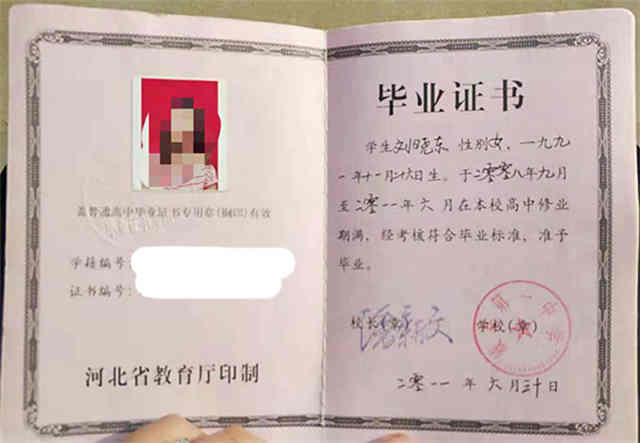 盖普通高中毕业证书专用章(钢印)有效
学籍编号:
证书编号:
河北省教育厅印制
毕业证书
学生刘晓东 性别女,一九九
一年十一月十六日生。于二零零八年九月
至二零一一年六月在本校高中修业
期满,经考核符合毕业标准,准予
毕业。
校长(章)
学校(章)
第一中学
二零一一年六月三十日